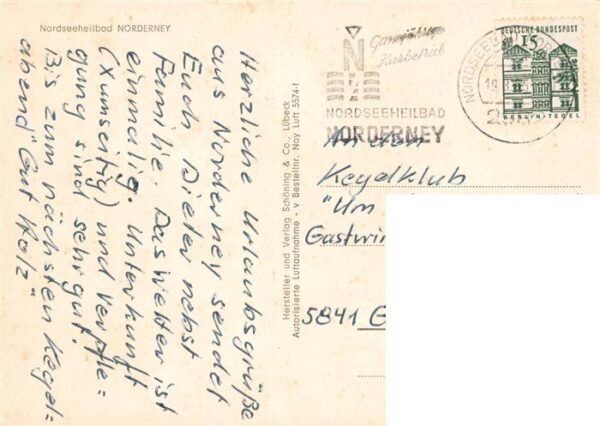 Nordseeheilbad NORDERNEY
Herzliche Urlaubsgrüße
aus Norderney sendet
Euch Dieter nebst
Familie. Das Wetter ist
einmalig. Unterkunft
(Xumseitig) und Verpfle=
gung sind sehr gut.
Bis zum nächsten Kegel=
abend "Gut Holz"
Hersteller und Verlag Schöning & Co., Lübeck
Autorisierte Luftaufnahme - v Bestellnr. Nay Luft 5574-f
N
Ganzjähriger
Kurbetrieb
NORDSEEHEILBAD
NORDERNEY
NORDSEEB
DEUTSCHE BUNDESPOST
15
BERLIN-TEGEL
An den
Kegelklub
"Um
Gastwir
5841 G